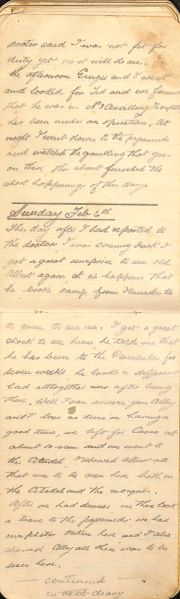 doctor said I was not fit for
duty yet so it will do me.
the afternoon and I went
and looked for Sid and we found
that he was in No Auxiliary Hospital
has been under an operation. At
night I went down to the
and watched the gambling that goes
on there, this about finished the
chief happenings of the day.
Sunday Feb 6th
This day after I had reported to
the doctors I was coming back &
got a great surprise to see old
Albert again, as it happens that
he broke camp from to
to come to see me. I got a great
shock to see him, he told me that
he has been to the for
seven weeks he looks a different
lad altogether now after being
there. Well I can assure you Atty
and I lost no time in having a
good time, we left for Cairo at
about 10-am and we went to
the Citadel. I showed Albert all
that was to be seen here both in
the Citadel and the mosques.
After we had dinner we then took
a tram to the pyramids. We had
our photos taken here and I also
showed Atty all there was to be
seen here.
continued
in next diary